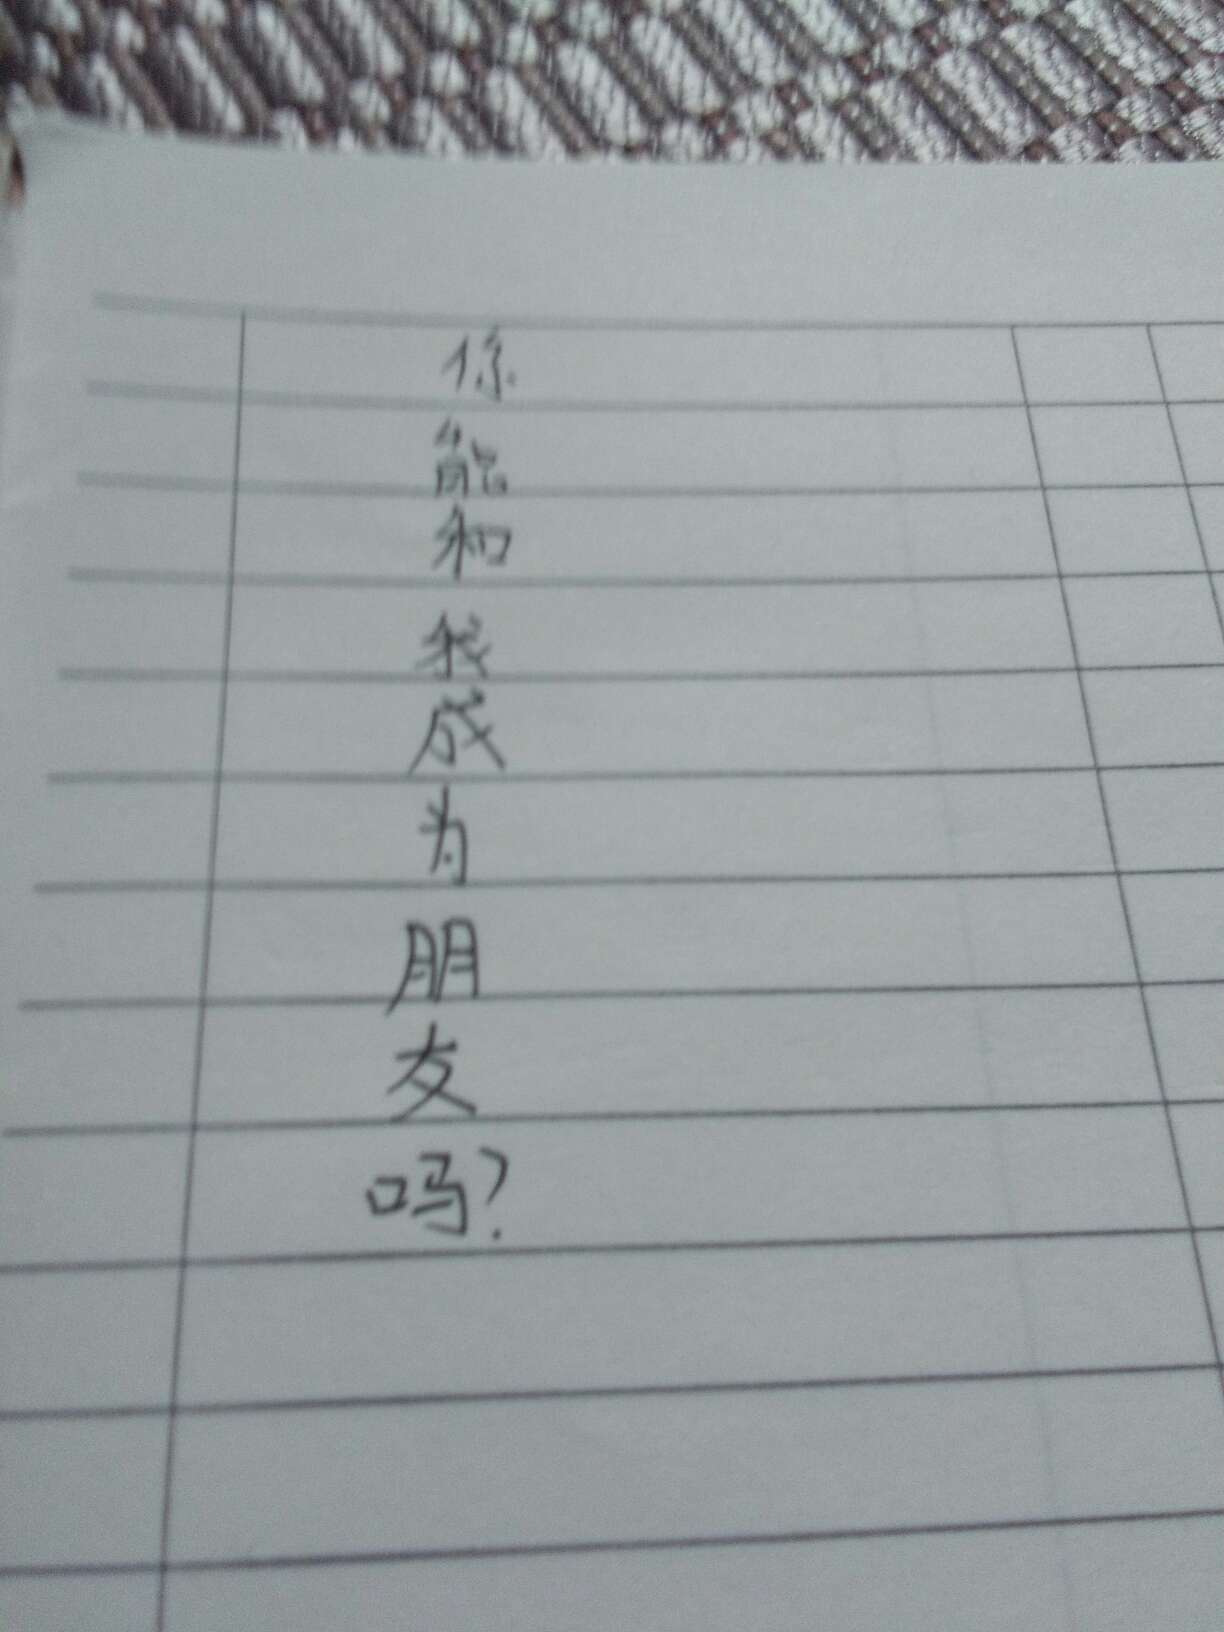 你
能
和
我
成
为
朋
友
吗?